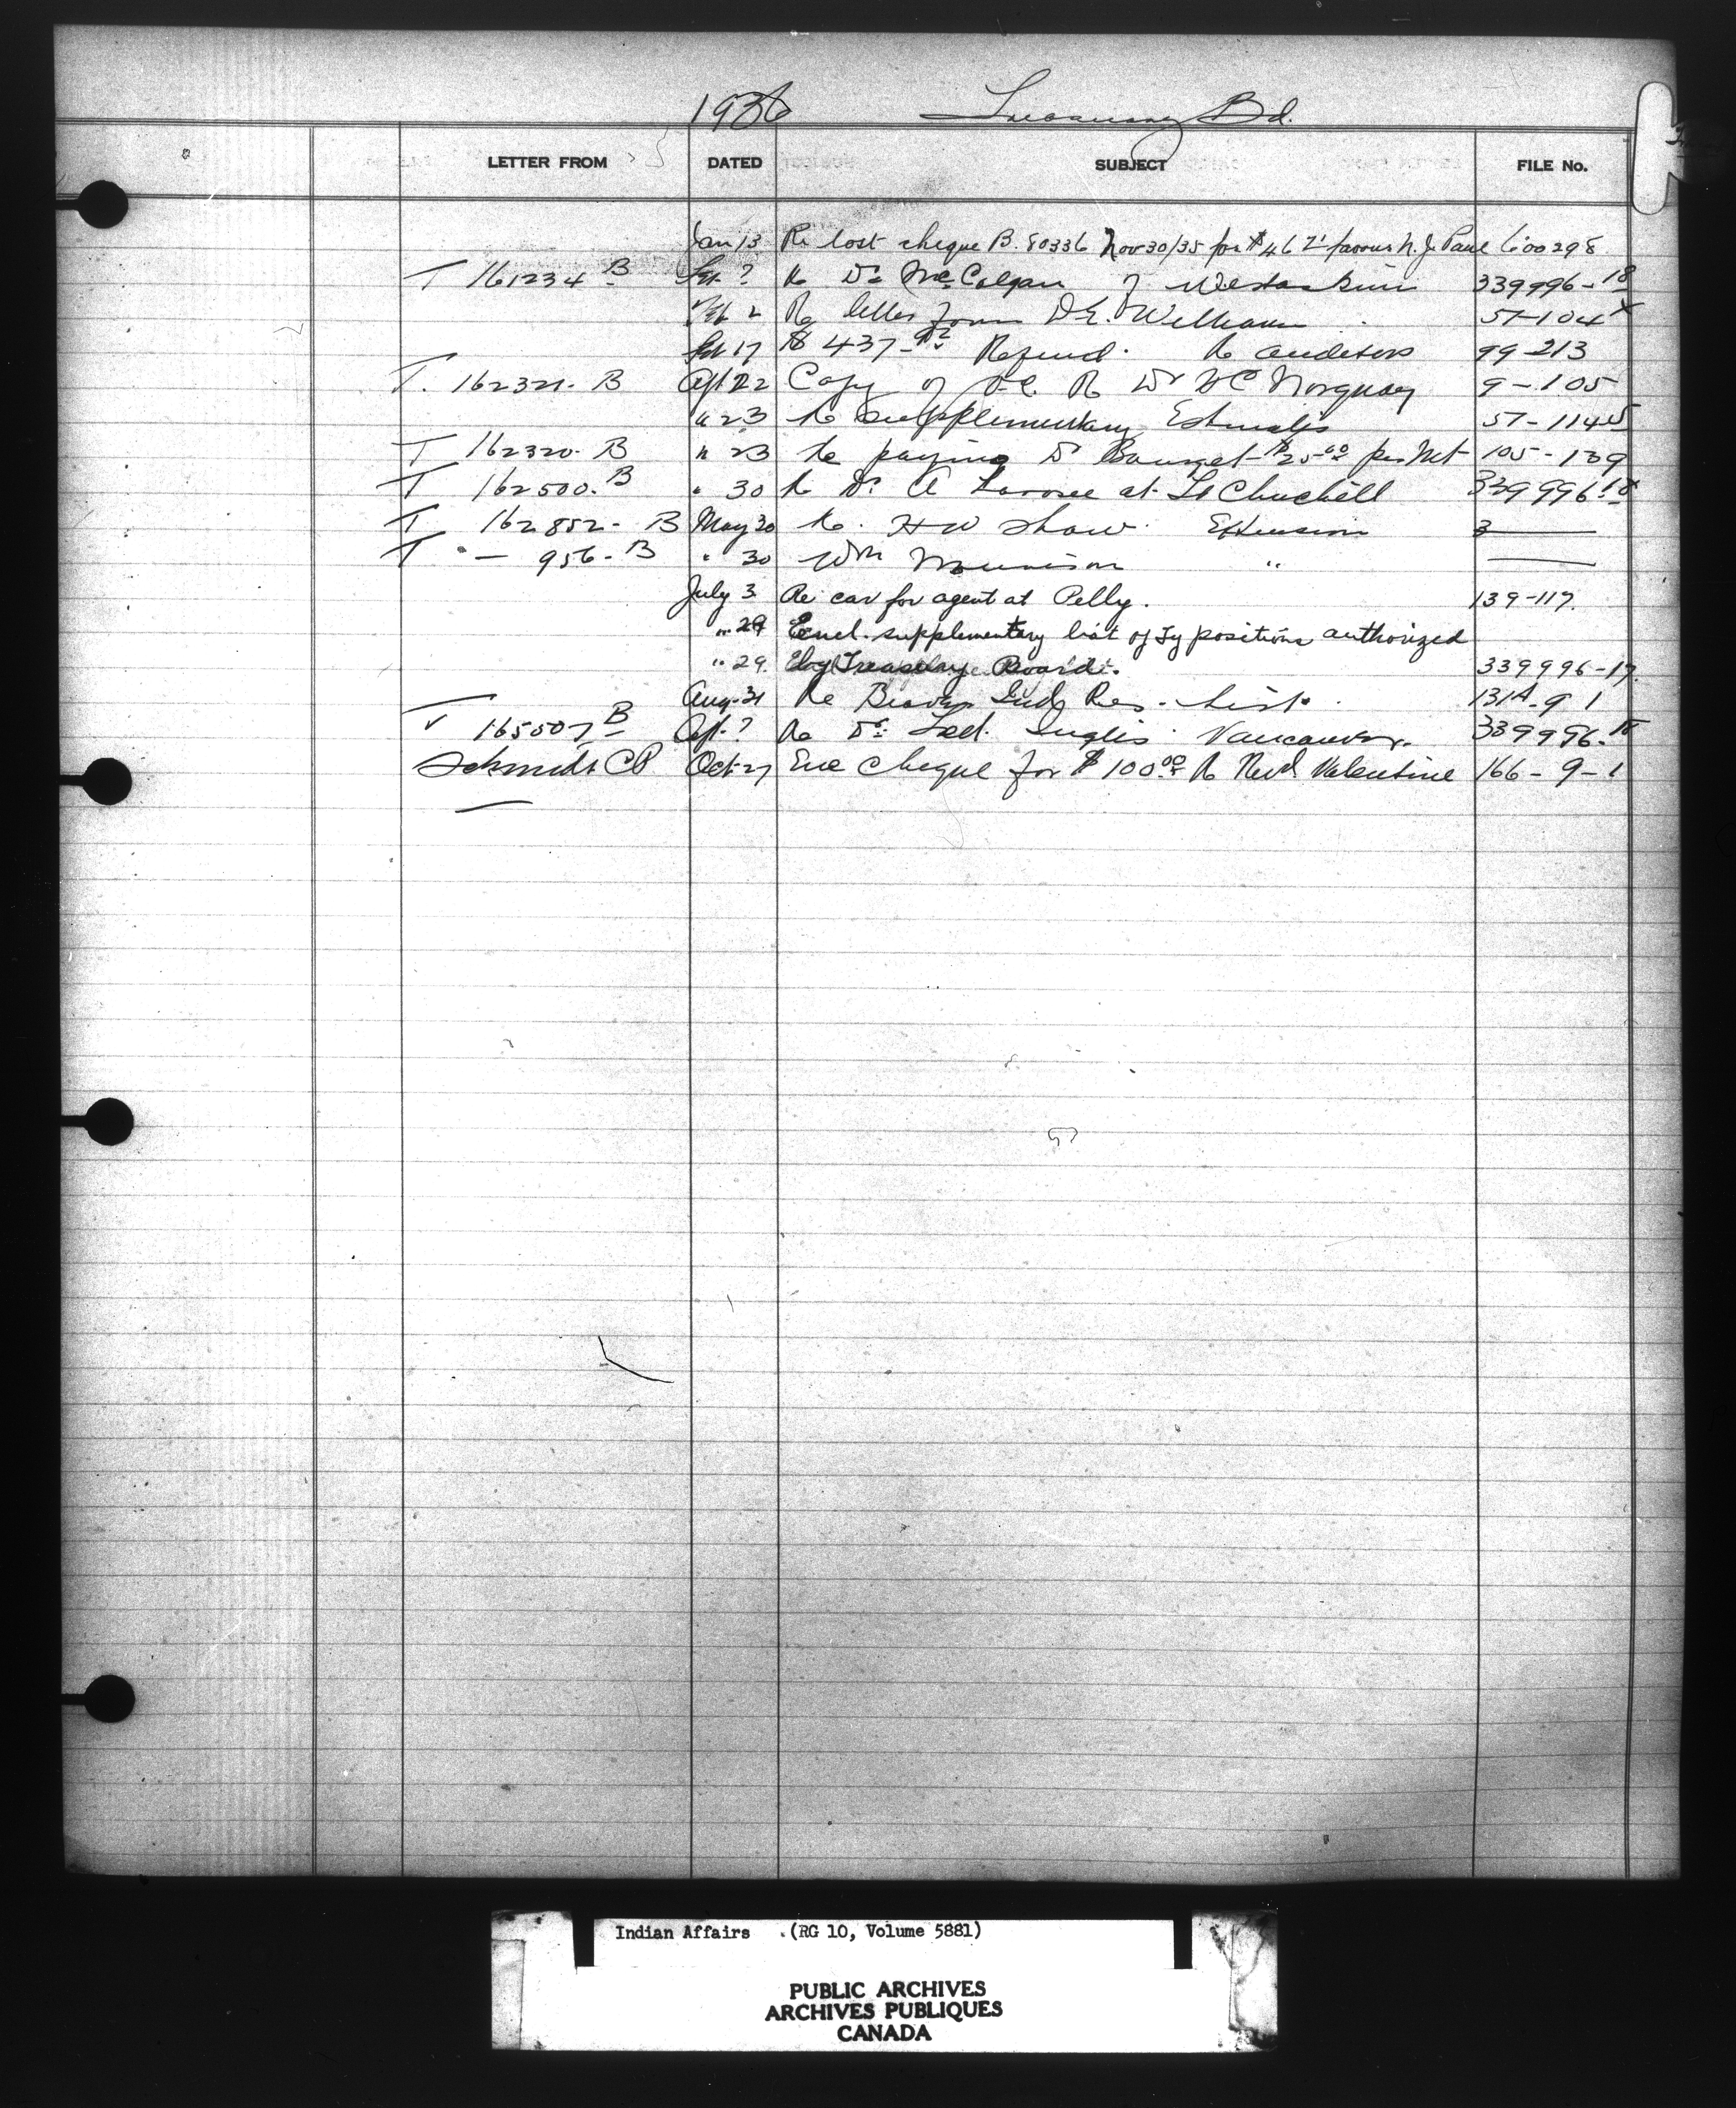 1936 Treasury Bd.
LETTER FROM DATED SUBJECT FILE No.
Jan 13 Re lost cheque B. 80336 Nov 30/35 for $46 favour N. J. Paul 600298
T 161234 B ? Re Dr McColgan of Wetaskiwin 339996-18
2 Re letter from D.E. William 57-104
17 $ 437 Refund. Re auditors 99-213
T. 162321. B Apl 22 Copy of O.C. Re Dr H C Norquay 9-105
" 23 Re supplementary Estimates 57-114
T 162320. B " 23 Re paying Dr $25.00 per 105-139
T 162500. B " 30 Re Dr. A at Ft Churchill 339996-18
T 162852- B May 20 Re. H W Shaw. Extension 3 —
T " — 956- B " 30 Wm Morrison " —
July 3 Re car for agent at Pelly. 139-117.
" 29 Encl. supplementary list of Ty positions authorized
" 29. by Treasury Board. 339996-17.
Aug. 31 Re Ind Res. List. 131A-9 1
T 165507 B ? Re Dr. Fred. Inglis Vancouver. 339996-18
Schmidt CP Oct 27 Enc Cheque for $100.00 Re Revd Valentine 166-9-1
Indian Affairs . (RG 10, Volume 5881)
PUBLIC ARCHIVES
ARCHIVES PUBLIQUES
CANADA